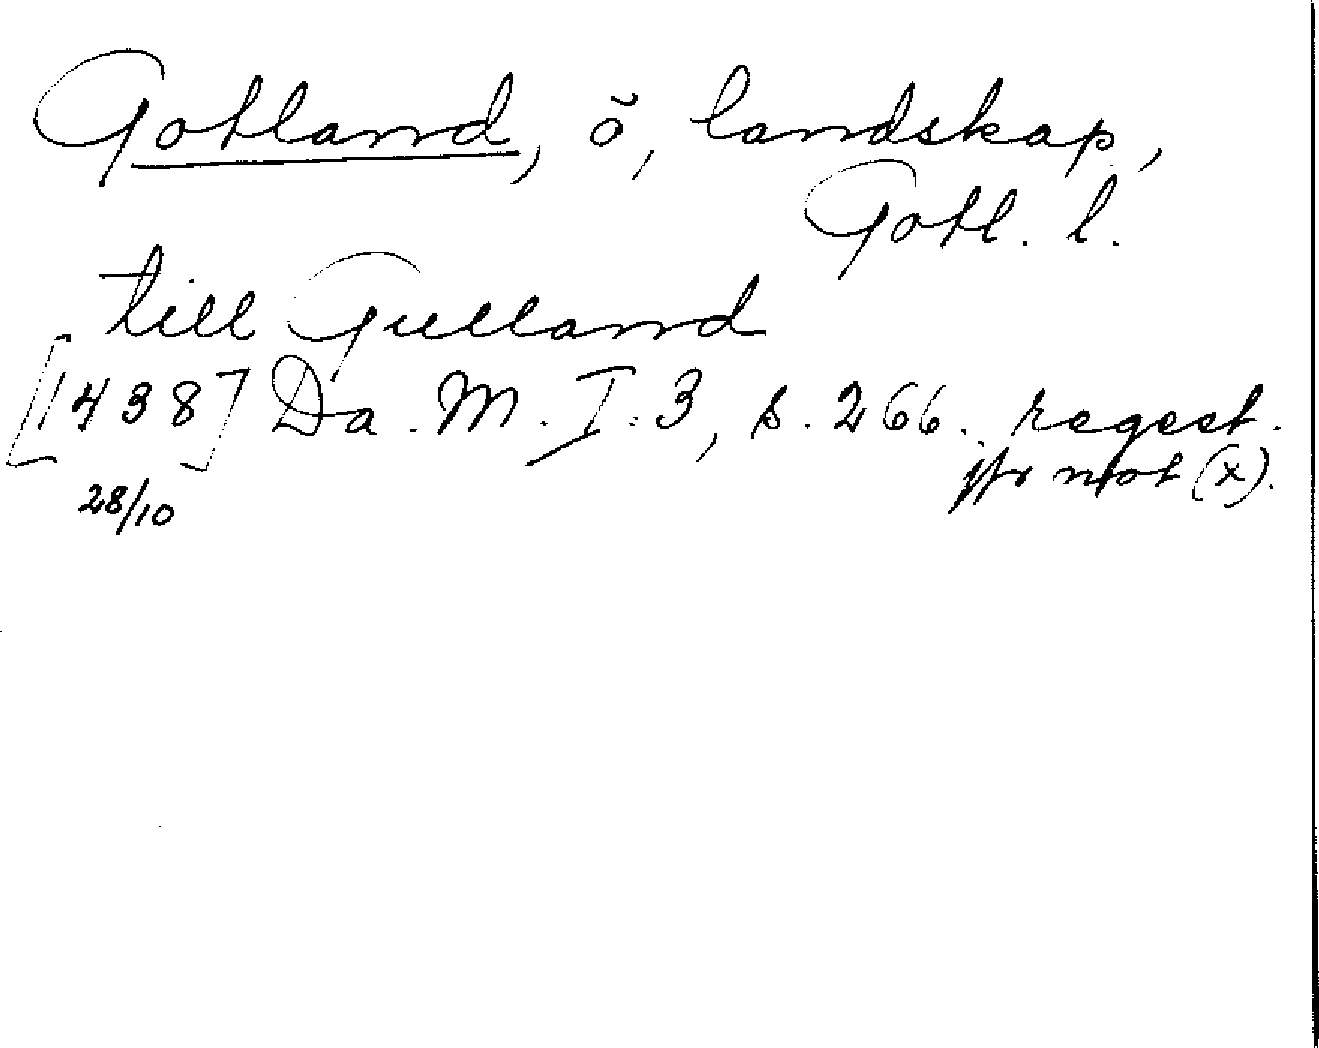 Gotland, ö, landskap,
Gotl. l.
till Gulland
[1438] Da. M. I:3, s. 266. regest.
28/10 jfr not (x).